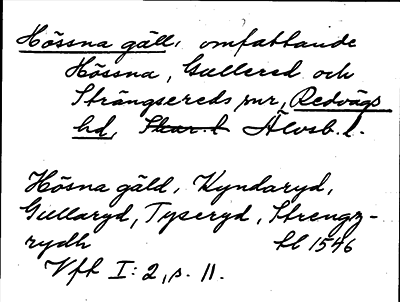 Hössna gäll, omfattande
Hössna, Gullered och
Strängsereds snr, Redvägs
hd, Skar. l Älvsb. l.
Hösna gäld, Kyndaryd,
Gullaryd, Tyseryd, Strengz-
rydh hl 1546
Vfh I: 2, s. 11.